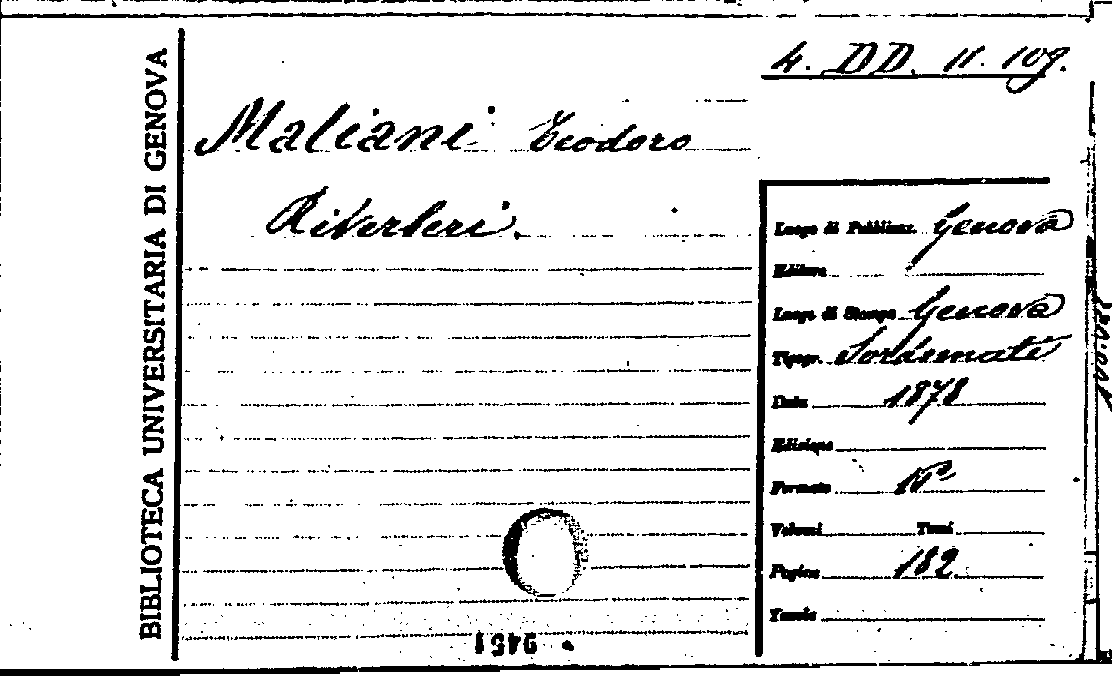 BIBLIOTECA UNIVERSITARIA DI GENOVA
4. DD. 11. 109.
Maliani Teodoro
Riverberi.
Luogo di Pubblicaz. Genova
Editore
Luogo di Stampa Genova
Tipogr. Sordomuti
Data 1878
Edizione
Formato 16º
Volumi Tomi
Pagine 182
Tavole
9451